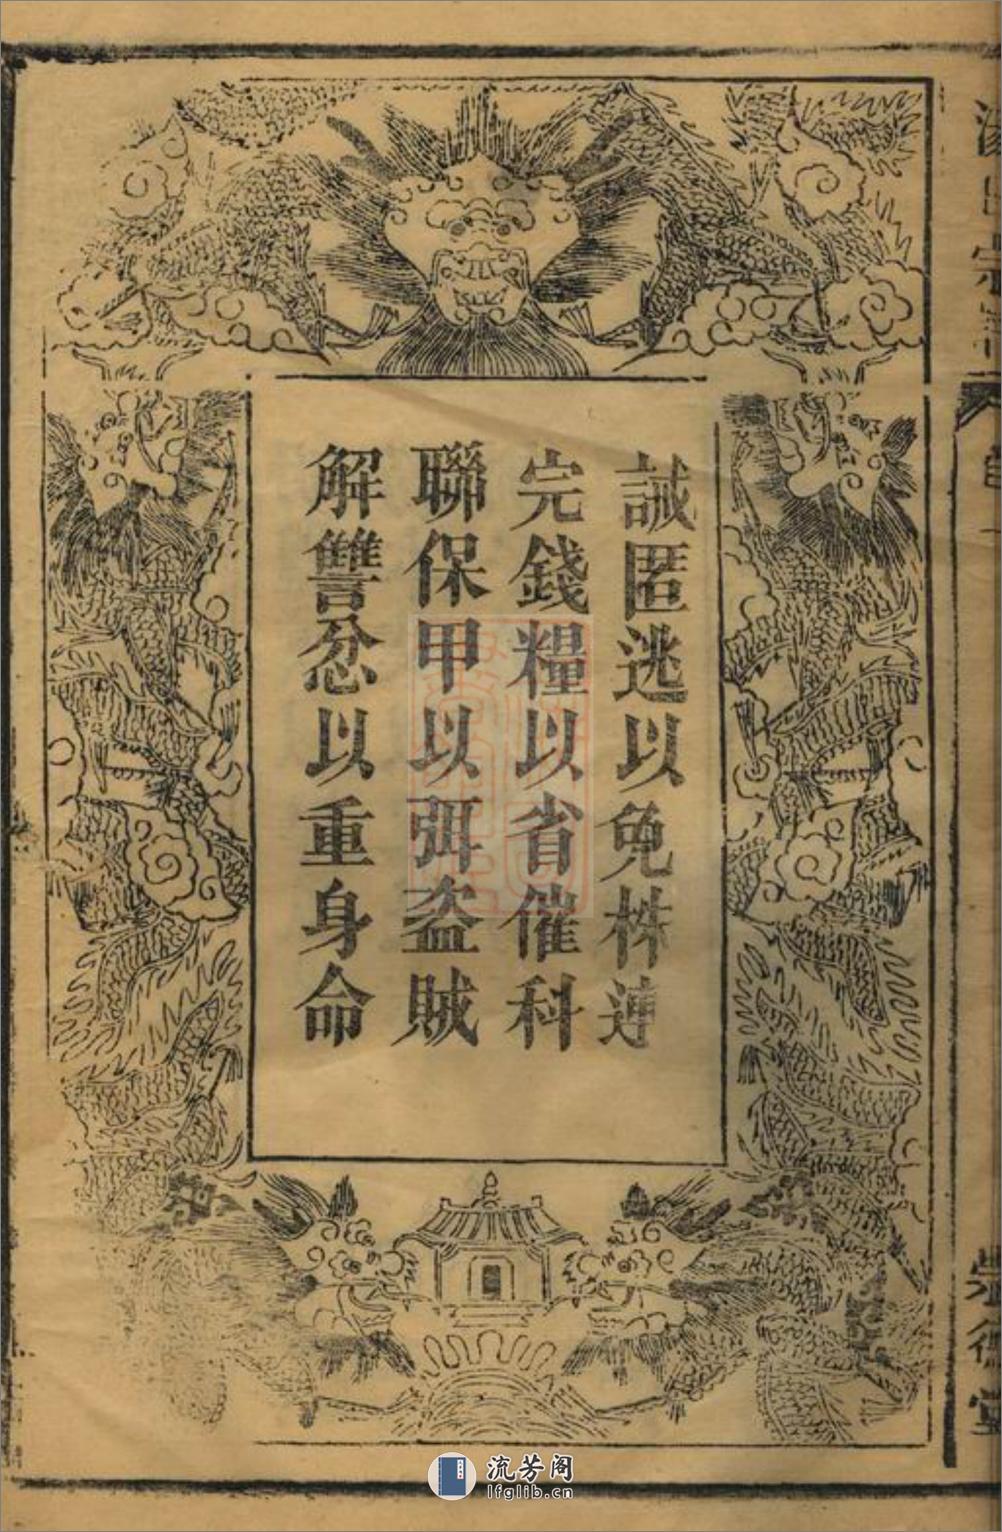 誡匿逃以免株連
完錢糧以省催科
聯保甲以弭盗賊
解讐忿以重身命
崇德堂
流芳阁
lfglib.cn